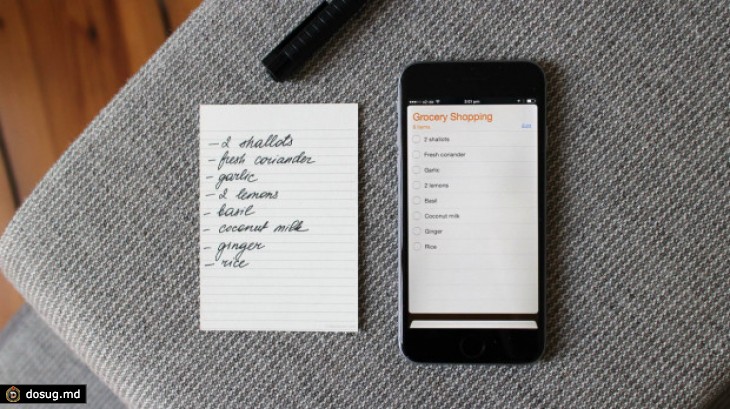 - 2 shallots
- fresh coriander
- garlic
- 2 lemons
- basil
- coconut milk
- ginger
- rice
Grocery Shopping
8 items
Edit
2 shallots
Fresh coriander
Garlic
2 lemons
Basil
Coconut milk
Ginger
Rice
dosug.md